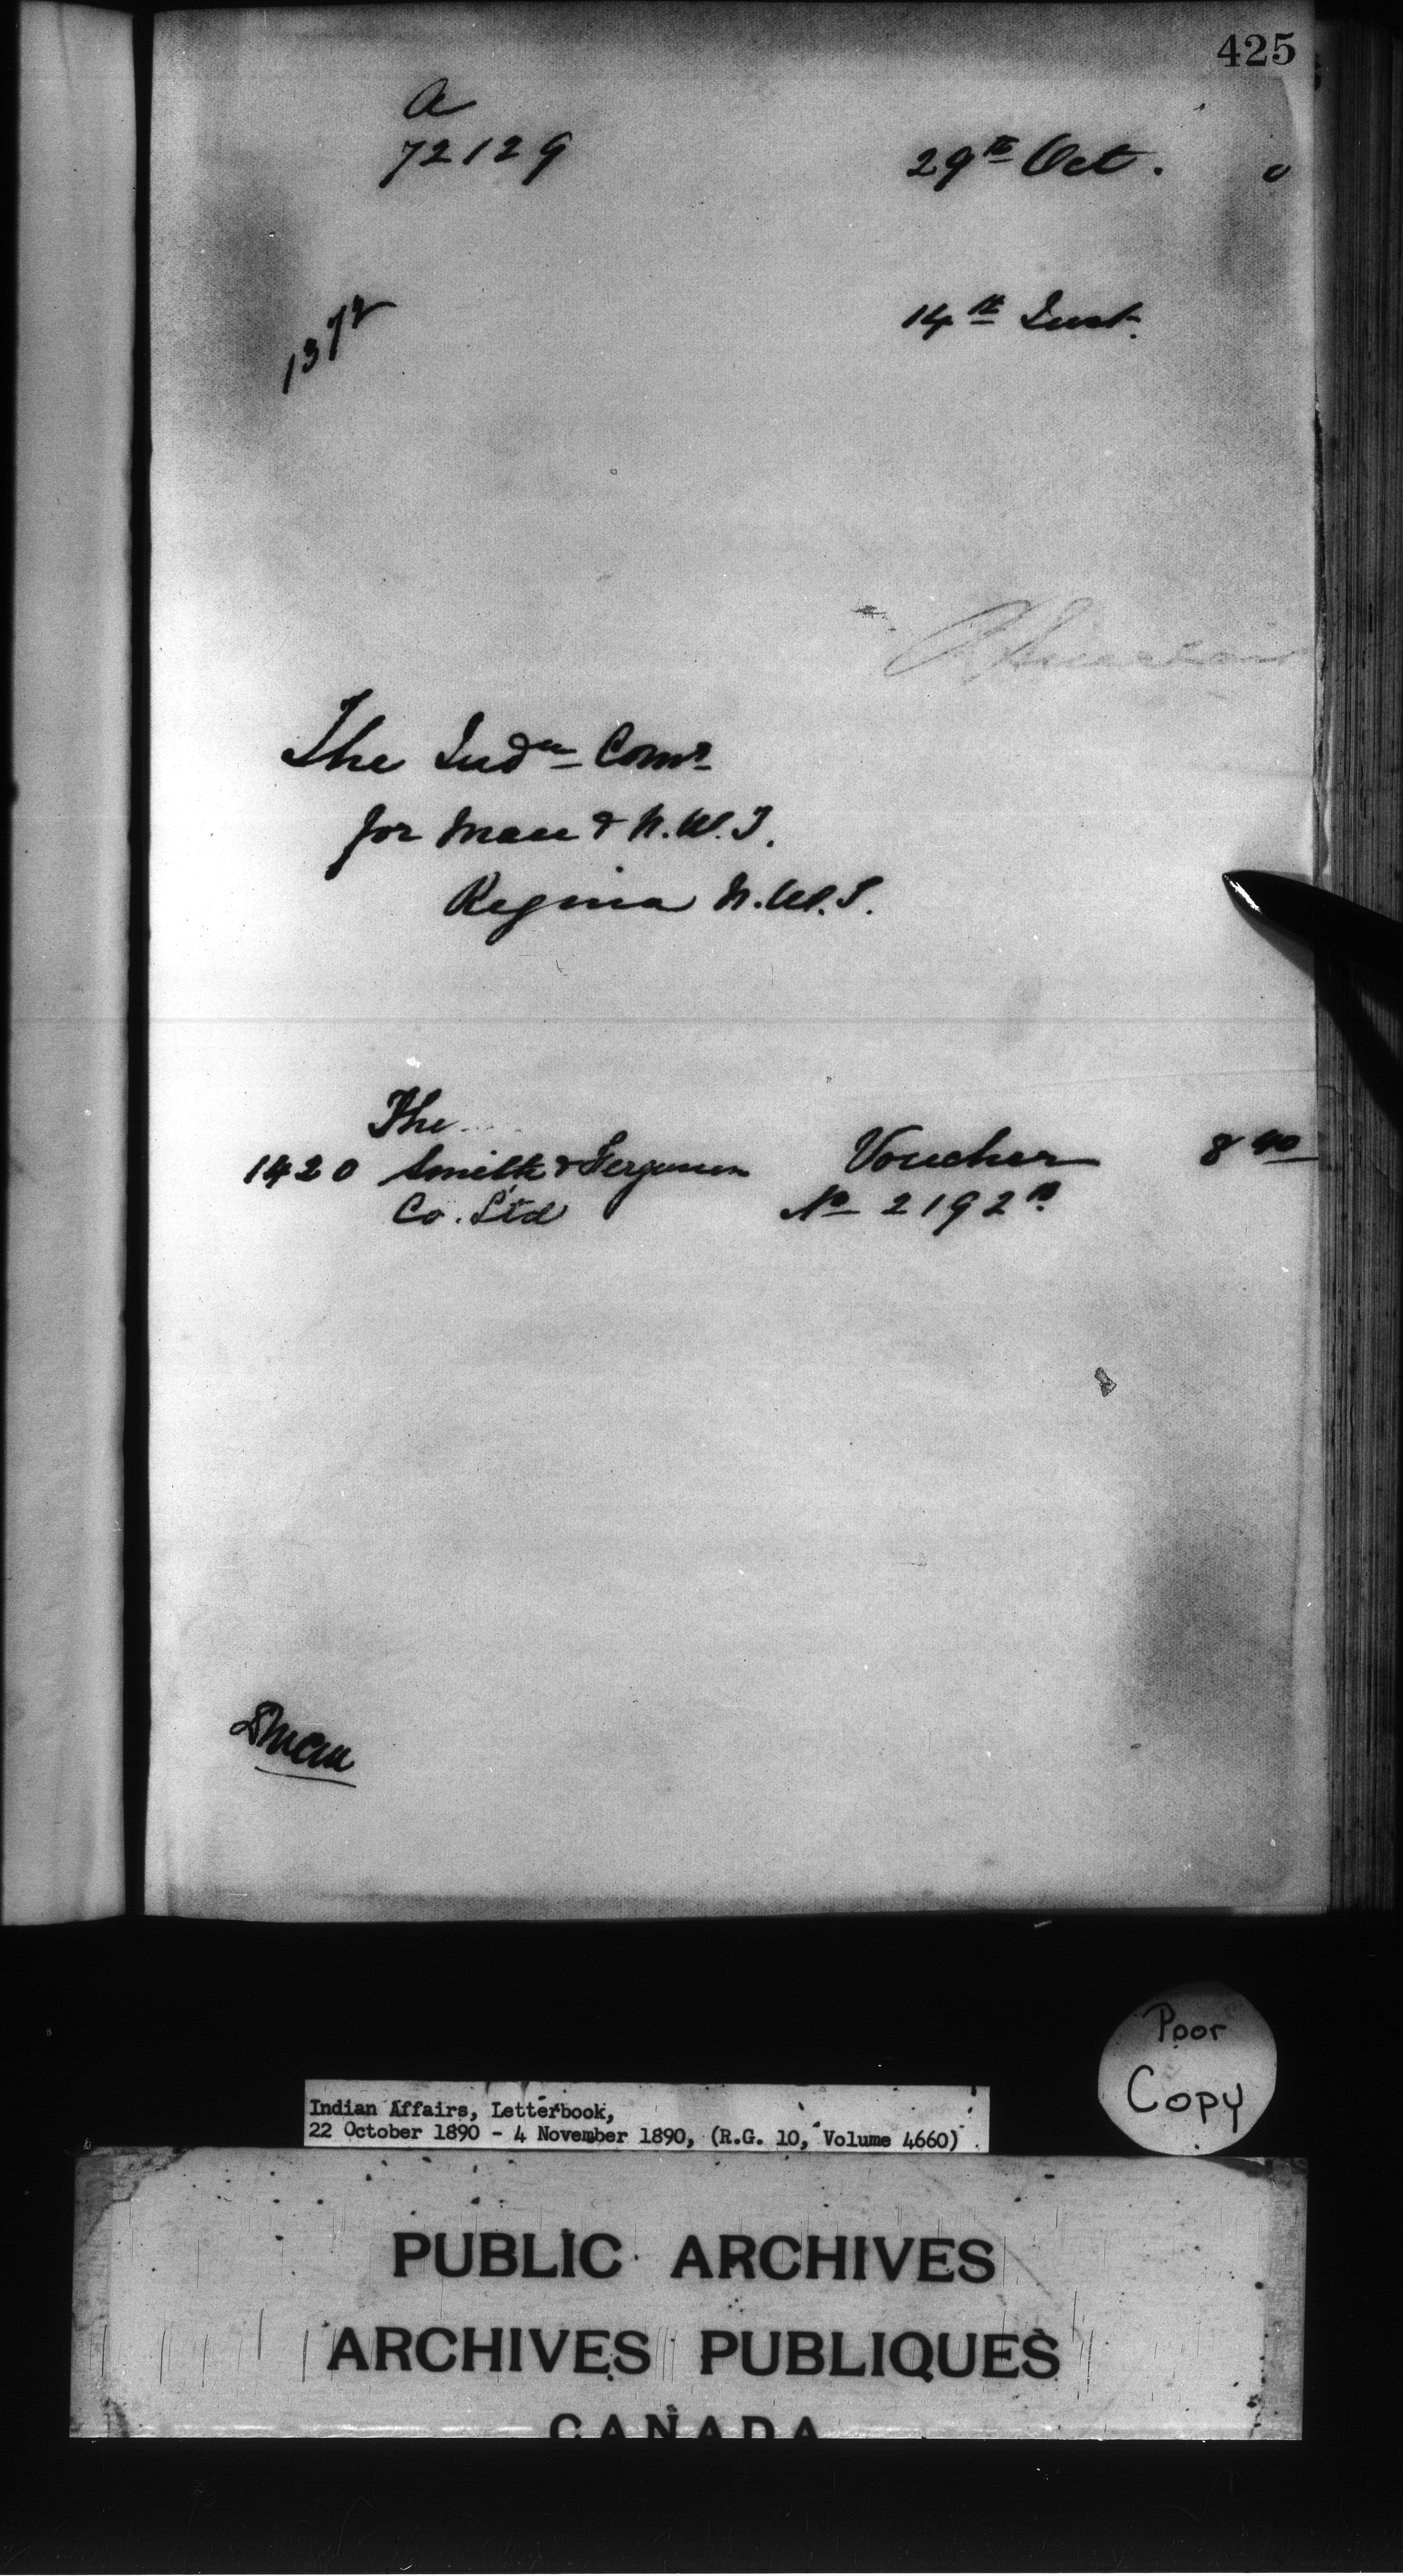 425
A
72129 29th Oct. 0
1372
14th Inst.
The Indn Comr
for Man & N.W.T.
Regina N.W.T.
The
1420 Smith & Ferguson Voucher 8 40
Co. Ltd No 2192
Poor
Copy
Indian Affairs, Letterbook,
22 October 1890 - 4 November 1890, (R.G. 10, Volume 4660)
PUBLIC ARCHIVES
ARCHIVES PUBLIQUES
CANADA